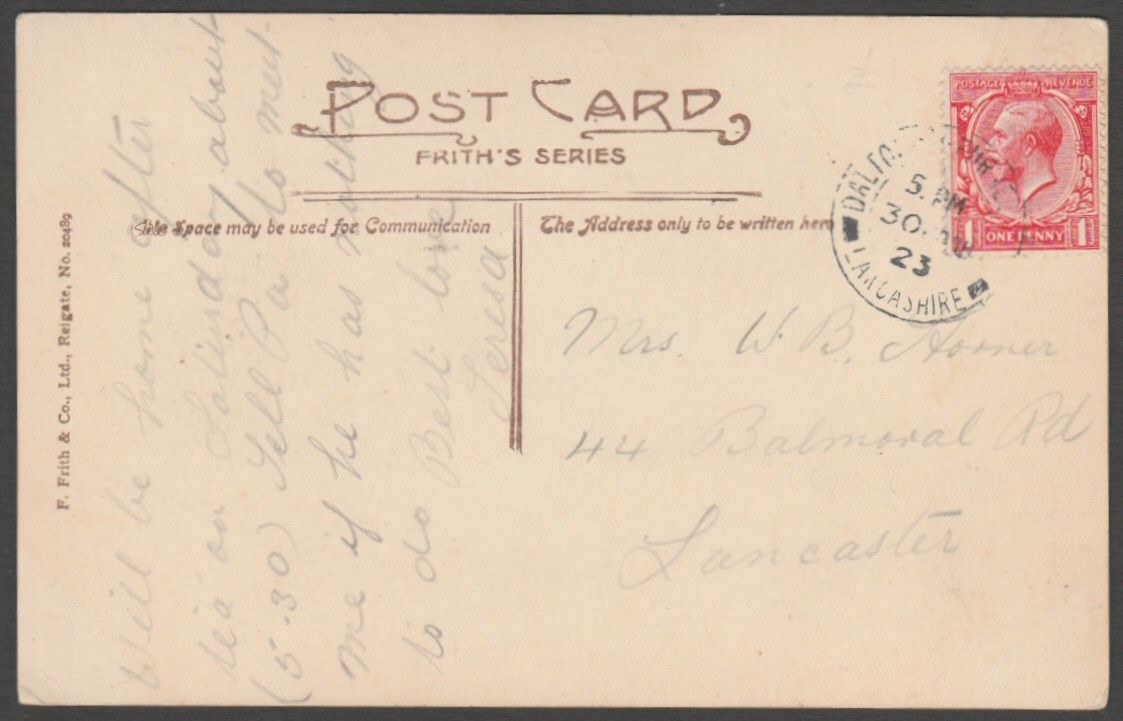 POST CARD
FRITH'S SERIES
This Space may be used for Communication
The Address only to be written here
F. Frith & Co., Ltd., Reigate, No. 20489
Will be home after
tea on Saturday about
(5.30) Tell Pa to meet
me if he has nothing
to do Best love
Teresa
Mrs. W. B. Horner
44 Balmoral Rd
Lancaster
POSTAGE REVENUE
1 ONE PENNY 1
5. PM
30.
23
LANCASHIRE